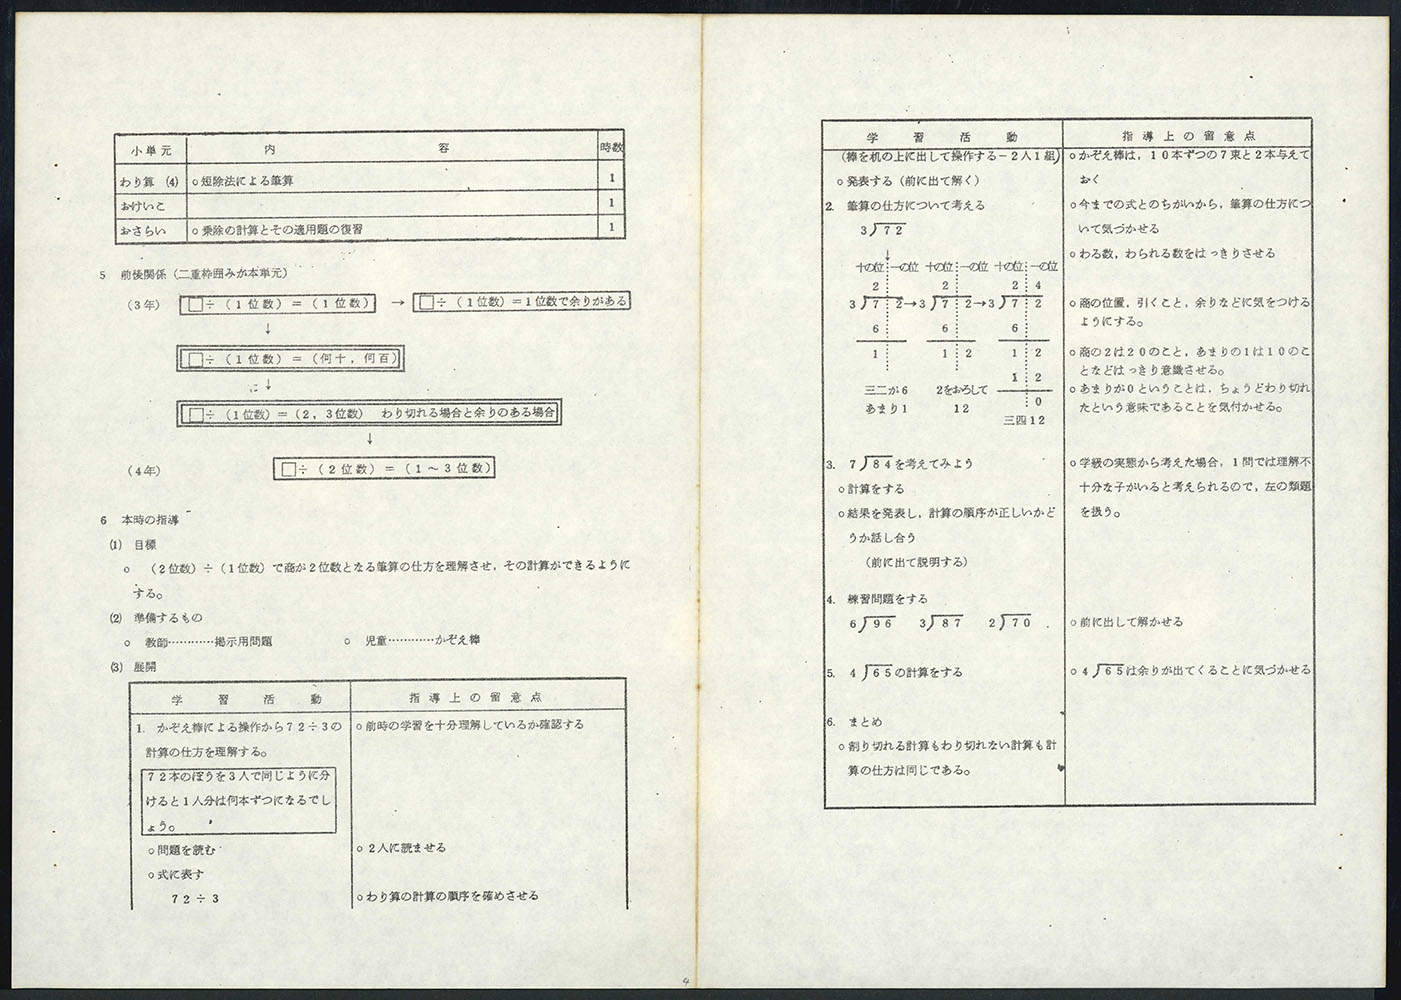 小単元 内容 時数
わり算 (4) ○短除法による筆算 1
おけいこ 1
おさらい ○乗除の計算とその適用題の復習 1
5 前後関係（二重枠囲みが本単元）
（3年） □÷（1位数）＝（1位数） → □÷（1位数）＝1位数で余りがある
↓
□÷（1位数）＝（何十，何百）
↓
□÷（1位数）＝（2，3位数） わり切れる場合と余りのある場合
↓
（4年） □÷（2位数）＝（1～3位数）
6 本時の指導
(1) 目標
○ （2位数）÷（1位数）で商が2位数となる筆算の仕方を理解させ，その計算ができるように
する。
(2) 準備するもの
○ 教師…………掲示用問題 ○ 児童…………かぞえ棒
(3) 展開
学習活動 指導上の留意点
1. かぞえ棒による操作から72÷3の
計算の仕方を理解する。
○前時の学習を十分理解しているか確認する
72本のぼうを3人で同じように分
けると1人分は何本ずつになるでし
ょう。
○問題を読む
○2人に読ませる
○式に表す
72÷3
○わり算の計算の順序を確めさせる
4
学習活動 指導上の留意点
（棒を机の上に出して操作する－2人1組）
○かぞえ棒は，10本ずつの7束と2本与えて
おく
○発表する（前に出て解く）
2. 筆算の仕方について考える
○今までの式とのちがいから，筆算の仕方につ
いて気づかせる
3)72
○わる数，わられる数をはっきりさせる
↓
十の位 一の位 十の位 一の位 十の位 一の位
2 2 2 4
3)7 2→3)7 2→3)7 2
6 6 6
1 1 2 1 2
1 2
0
三二が6 2をおろして
あまり1 12
三四12
○商の位置，引くこと，余りなどに気をつける
ようにする。
○商の2は20のこと，あまりの1は10のこ
となどはっきり意識させる。
○あまりが0ということは，ちょうどわり切れ
たという意味であることを気付かせる。
3. 7)84を考えてみよう
○学級の実態から考えた場合，1問では理解不
十分な子がいると考えられるので，左の類題
を扱う。
○計算をする
○結果を発表し，計算の順序が正しいかど
うか話し合う
（前に出て説明する）
4. 練習問題をする
6)96 3)87 2)70
○前に出して解かせる
5. 4)65の計算をする
○4)65は余りが出てくることに気づかせる
6. まとめ
○割り切れる計算もわり切れない計算も計
算の仕方は同じである。